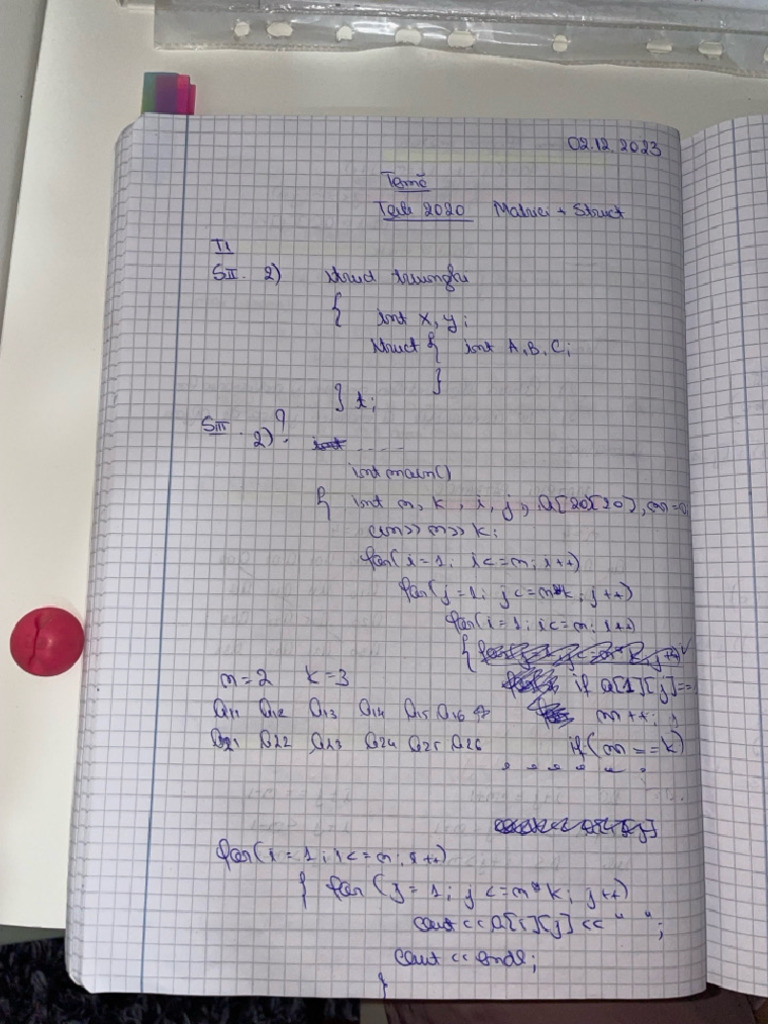 02.12.2023
Temă
Teste 2020 Matrici + Struct
T1
SII. 2) struct triunghi
{ int x, y;
struct { int A, B, C;
}
} t;
SIII. 2) ?
int main()
{ int n, k, i, j, a[20][20], m=0;
cin>>n>>k;
for(i=1; i<=n; i++)
for(j=1; j<=n*k; j++)
for(i=1; i<=n; i++)
{
n=2 k=3 if a[1][j]==
a11 a12 a13 a14 a15 a16 m++;
a21 a22 a23 a24 a25 a26 if(m==k)
for(i=1; i<=n; i++)
{ for(j=1; j<=n*k; j++)
cout<<a[i][j]<<" ";
cout<<endl;
}